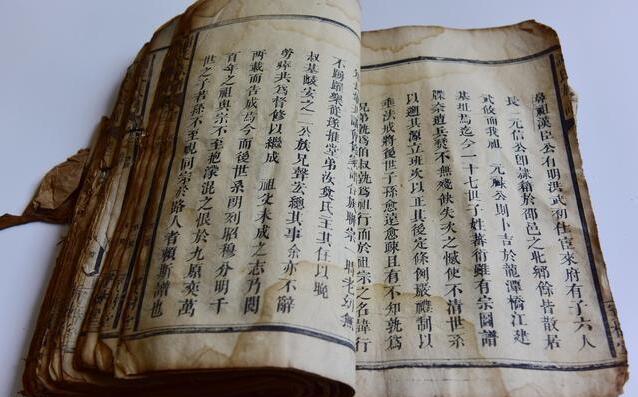 鼻祖漢臣公有明洪武初仕宦來府有子六人
長 元信公卽隸籍於邵邑之北鄉餘皆散居
武攸而我祖 元祿公則卜吉於龍潭橋江建
基址焉迄今一十七世子姓蕃衍雖有宗圖譜
牒奈遭兵燹不無殘缺失次之憾使不清世系
以遡其源立班次以正其後定條例嚴禮制以
垂法戒將後世子孫愈遠愈踈且有不知孰爲
兄弟孰爲伯叔孰爲祖行而於祖宗之名諱行
聯宗一時老幼無
不踴躍樂從遂推堂弟汝賛氏主其任以晚
叔基峻安之二公族兄聲宏總其事余亦不辭
勞瘁共爲督修以繼成 祖父未成之志乃閱
兩載而告成焉今而後世系明列昭穆分明千
百年之祖與宗不至抱濛混之恨於九原奕萬
世之子與孫不至視同宗於路人者賴斯譜也